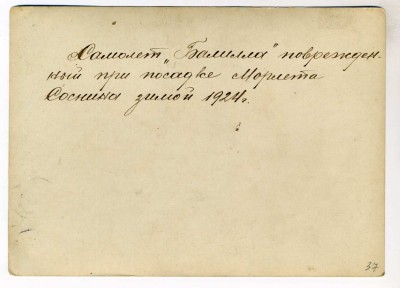 Самолет „Балилла" поврежден-
ный при посадке Морлета
Соснина зимой 1924г.
37